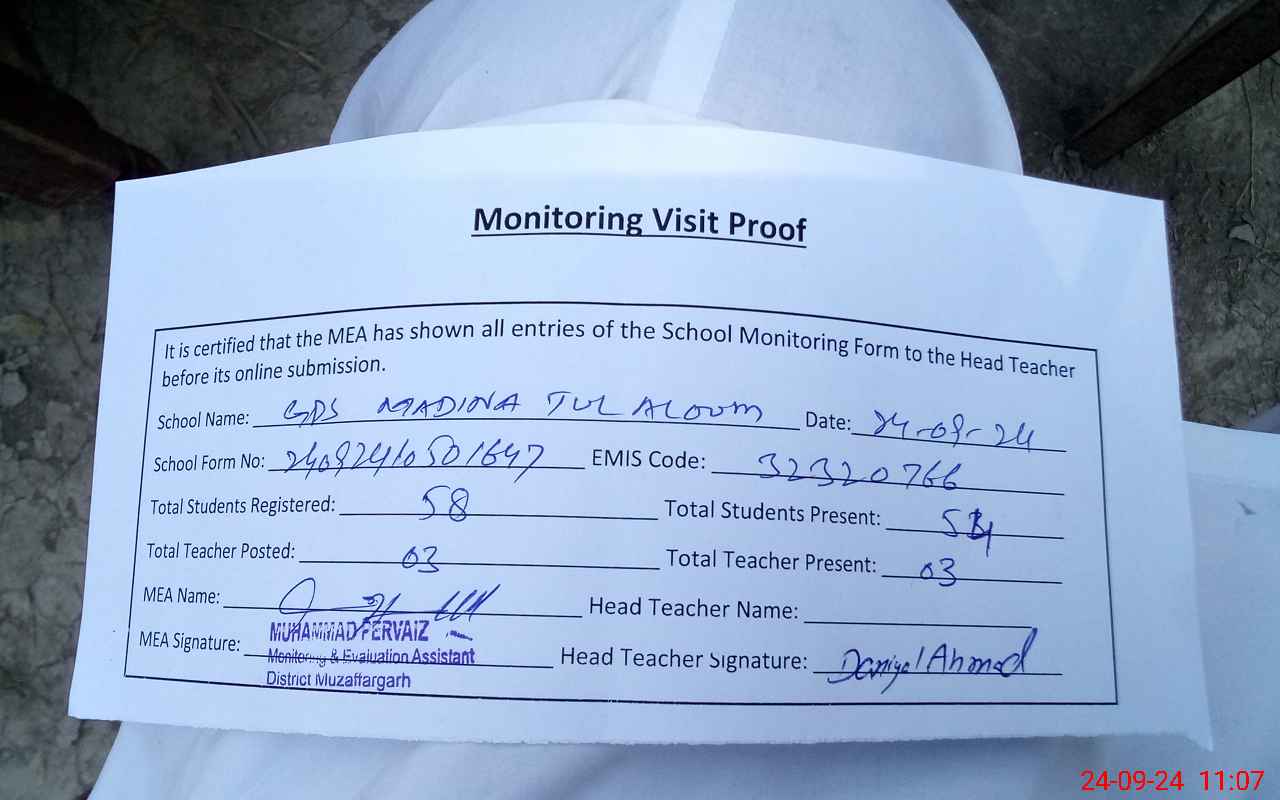 Monitoring Visit Proof
It is certified that the MEA has shown all entries of the School Monitoring Form to the Head Teacher
before its online submission.
School Name: GPS MADINA TUL ALOUM Date: 24-09-24
School Form No: 24092410501647 EMIS Code: 32320766
Total Students Registered: 58 Total Students Present:
Total Teacher Posted: 03 Total Teacher Present: 03
MEA Name: Head Teacher Name:
MUHAMMAD PERVAIZ
MEA Signature: Monitoring & Evaluation Assistant Head Teacher Signature: Daniyal Ahmad
District Muzaffargarh
24-09-24 11:07